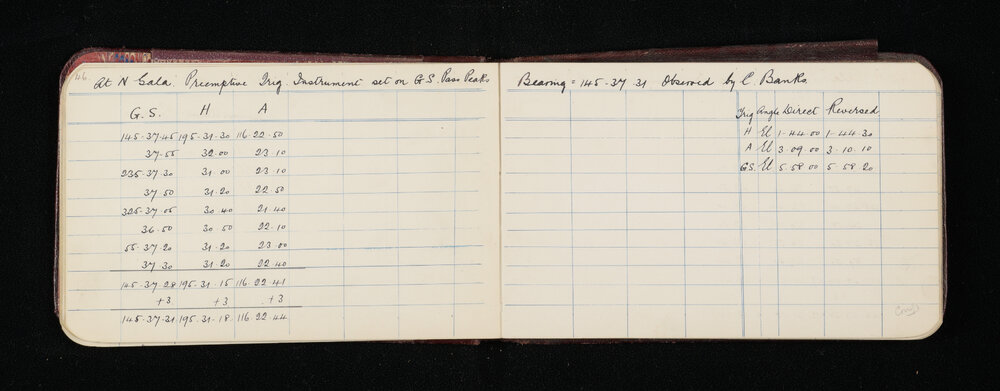 46.
At N Gala. Preemptive Trig. Instrument set on G.S. Pass Peaks Bearing = 145-37-31 Observed by C. Banks
G.S. H A
145-37-45 195-31-30 116-22-50
37-55 32-00 23-10
235-37-30 31-00 23-10
37-50 31-20 22-50
325-37-05 30-40 21-40
36-50 30-50 22-10
55-37-20 31-20 23-00
37-30 31-20 22-40
145-37-28 195-31-15 116-22-41
+3 +3 +3
145-37-31 195-31-18 116 22-44
Trig Angle Direct Reversed
H El 1-44-00 1-44-30
A El 3-09-00 3-10-10
G.S. El 5-58-00 5-58-20